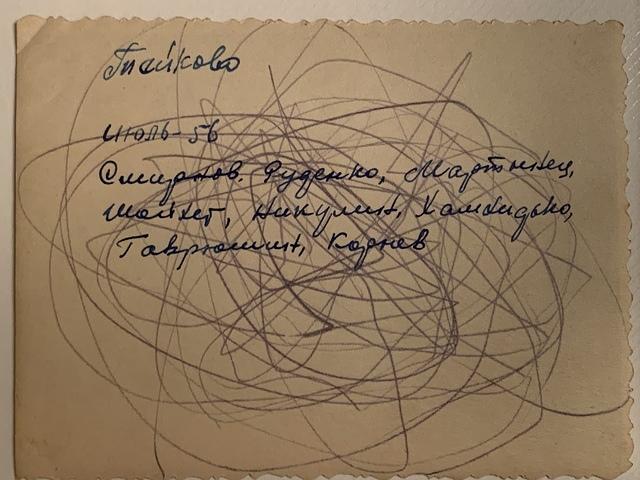 Тейково
июль-56
Смирнов. Руденко, Мартынец,
Шойхет, Никулин,
Гаврюшин, Корнев